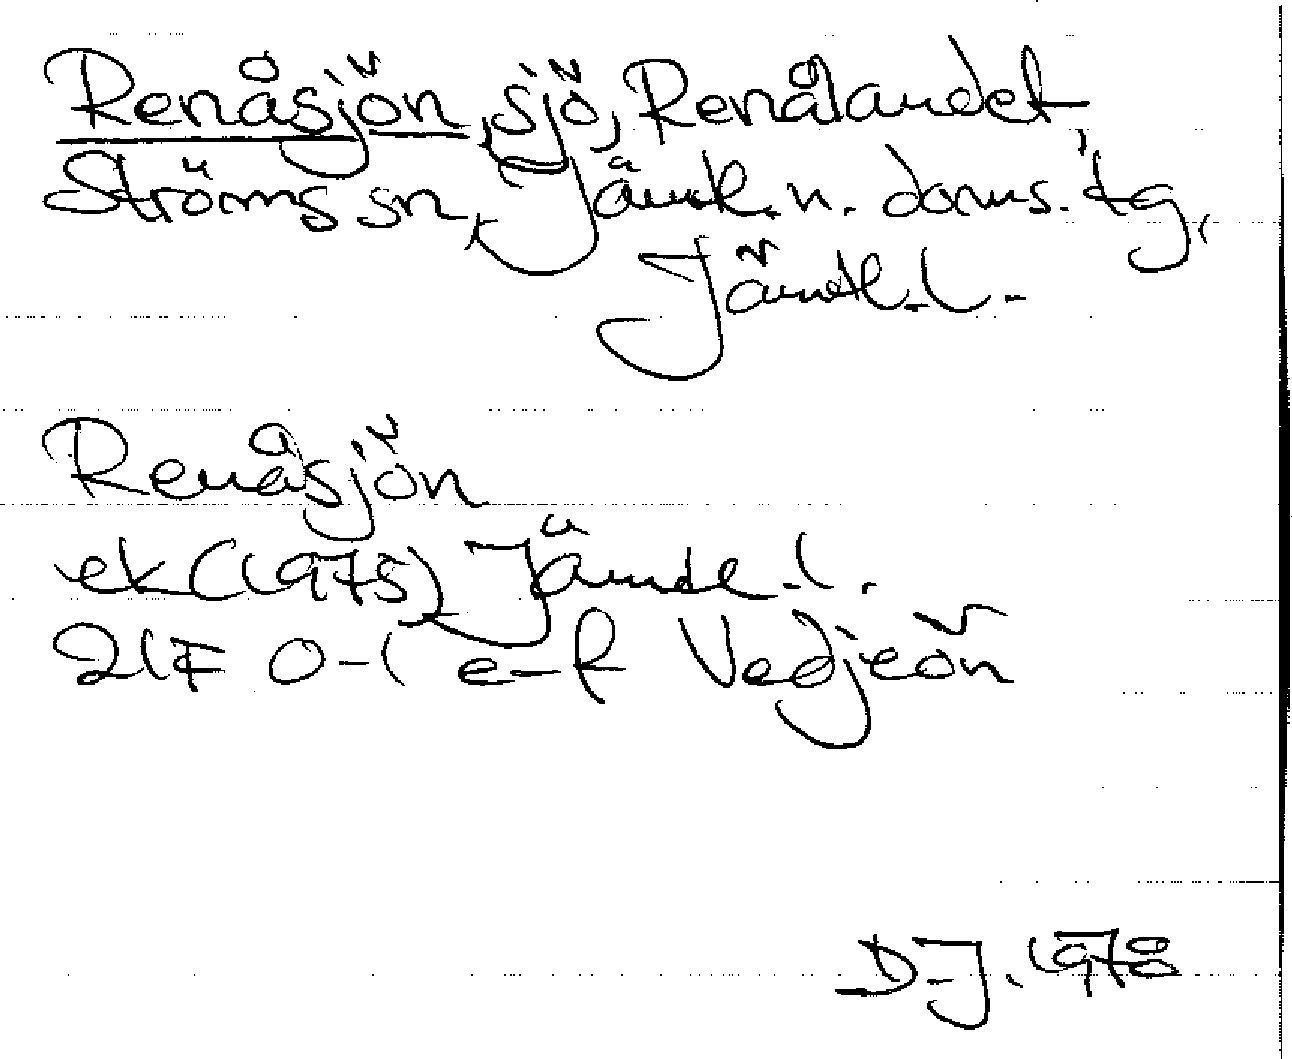 Renåsjön, sjö, Renålandet,
Ströms sn, Jämtl. n. doms. tg,
Jämtl. l.
Renåsjön
ek (1975) Jämtl. l.
21F 0-1 e-f Vedjeön
D.J. 1978